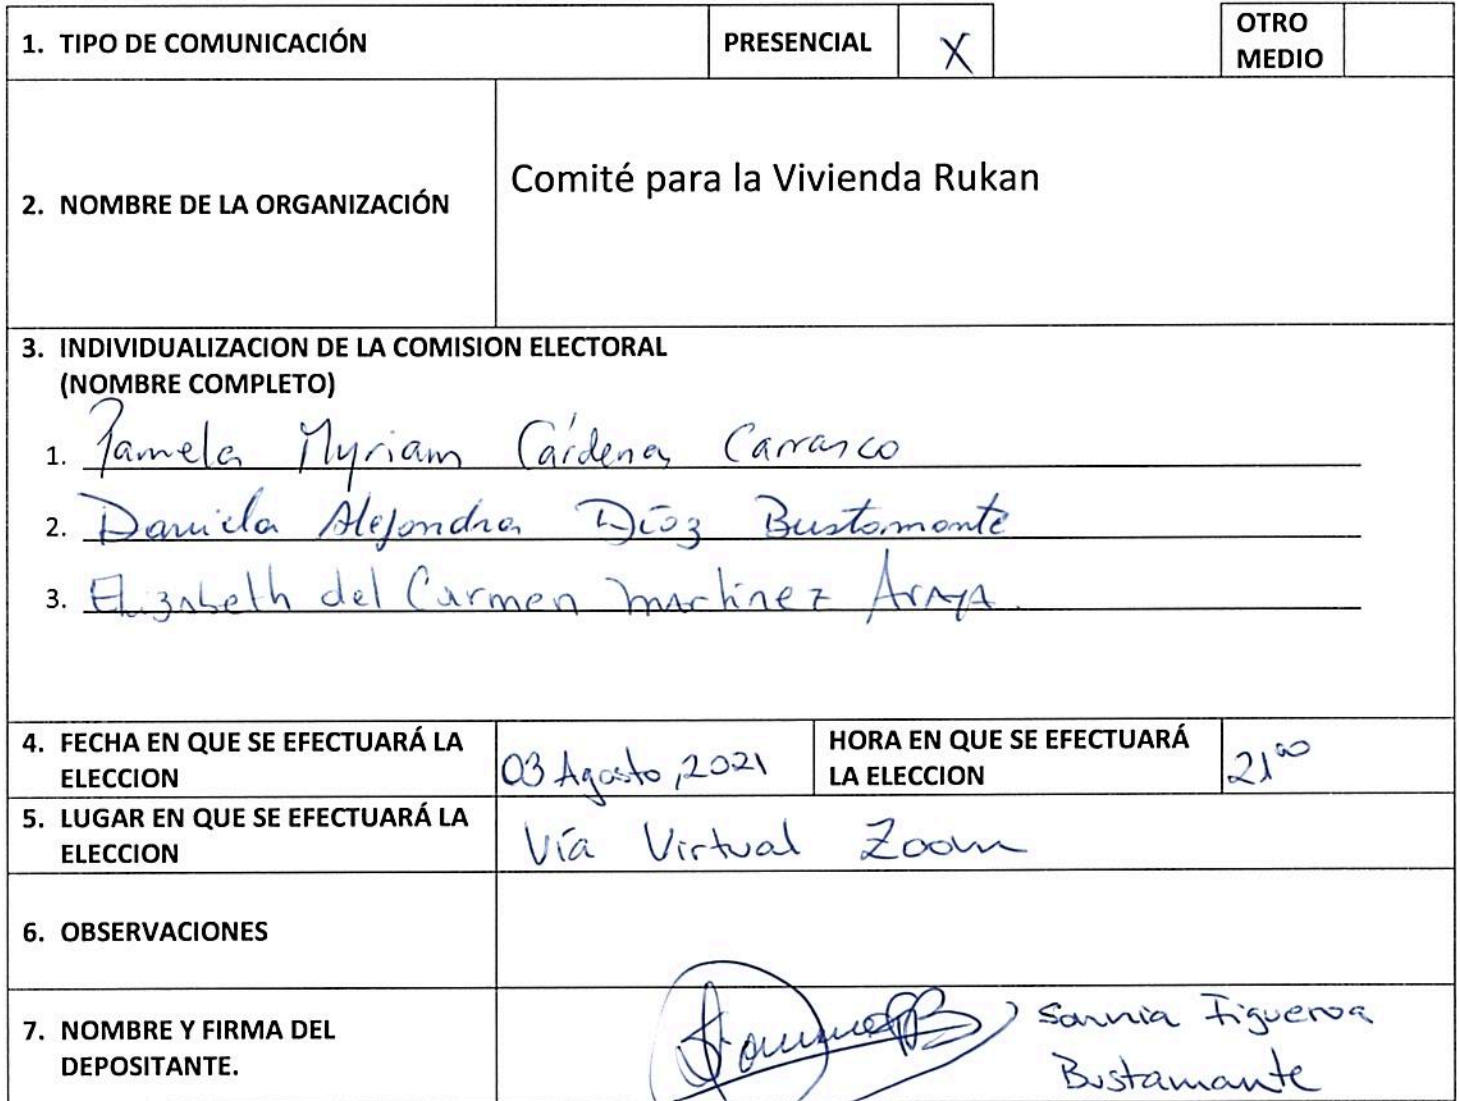 1. TIPO DE COMUNICACIÓN PRESENCIAL X OTRO MEDIO
2. NOMBRE DE LA ORGANIZACIÓN Comité para la Vivienda Rukan
3. INDIVIDUALIZACION DE LA COMISION ELECTORAL
(NOMBRE COMPLETO)
1. Pamela Myriam Cárdenas Carrasco
2. Daniela Alejandra Díaz Bustamante
3. Elizabeth del Carmen Martinez Araya.
4. FECHA EN QUE SE EFECTUARÁ LA ELECCION 03 Agosto, 2021 HORA EN QUE SE EFECTUARÁ LA ELECCION 21⁰⁰
5. LUGAR EN QUE SE EFECTUARÁ LA ELECCION Vía Virtual Zoom
6. OBSERVACIONES
7. NOMBRE Y FIRMA DEL DEPOSITANTE. Figueroa
Bustamante